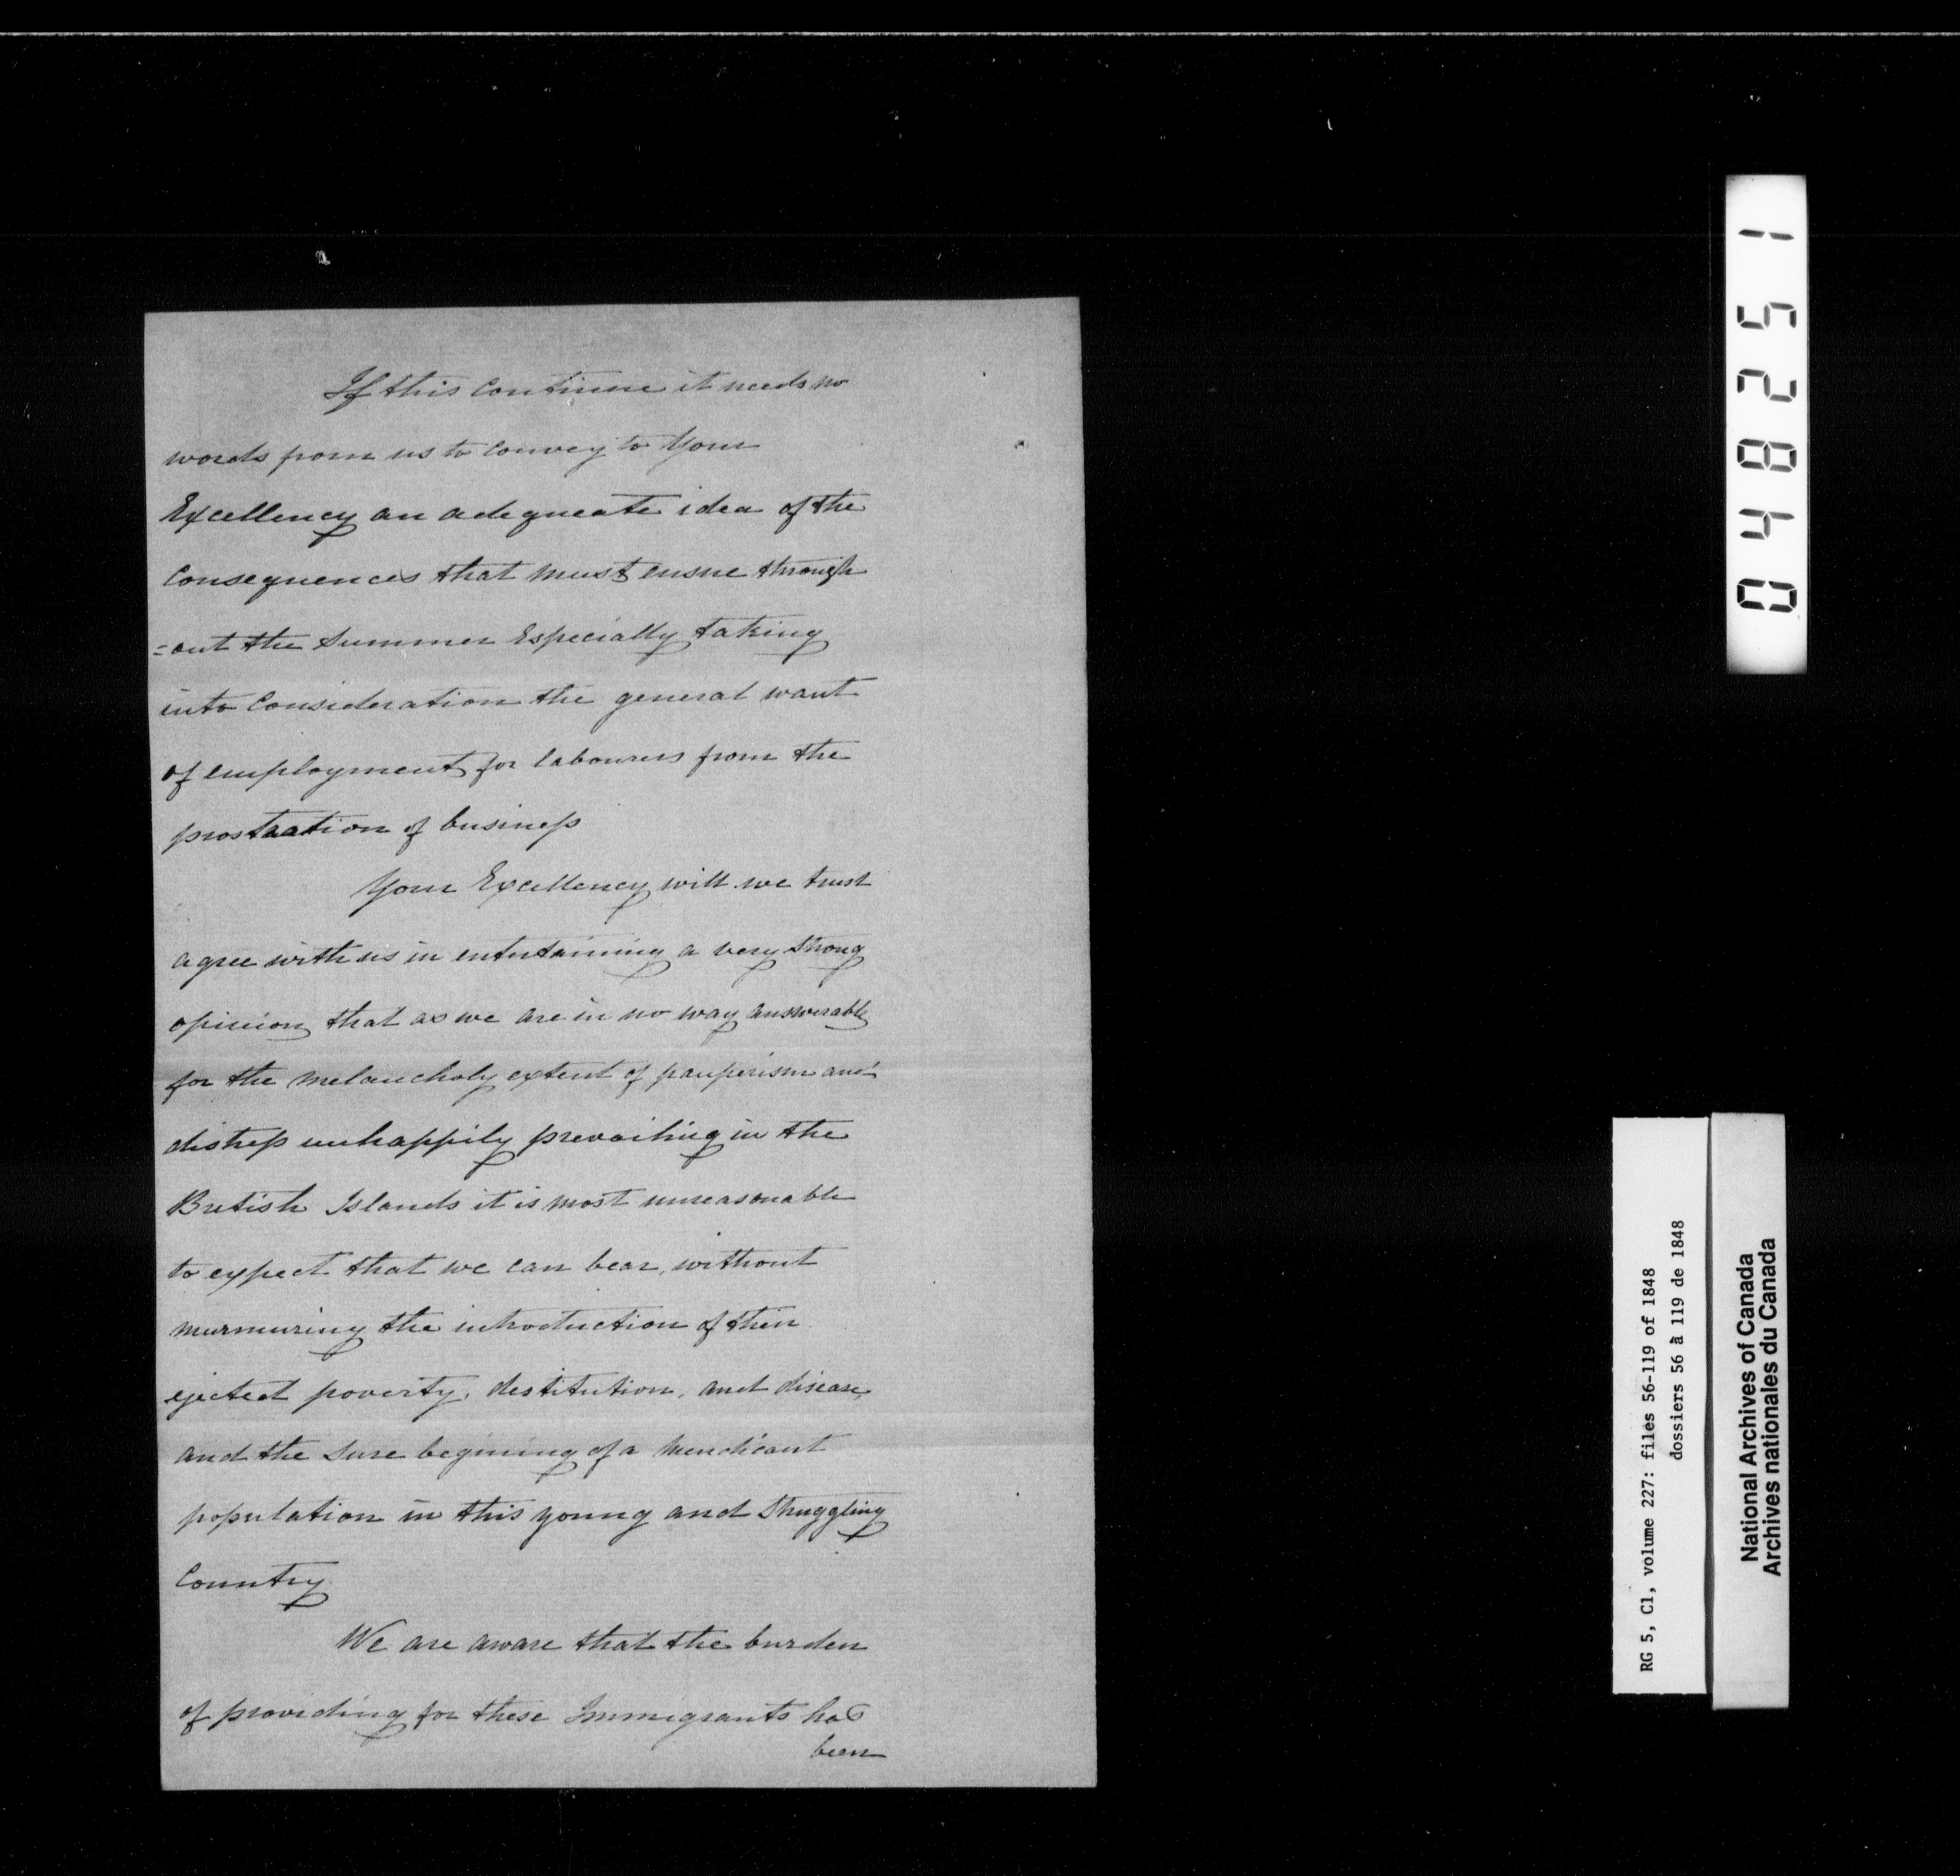 If this Continue it needs no
words from us to Convey to Your
Excellency an adequate idea of the
Consequences that must ensue through
=out the Summer Especially taking
into Consideration the general want
of employment for labourers from the
prostration of business
Your Excellency will we trust
agree with us in entertaining a very Strong
opinion that as we are in no way answerable
for the melancholy extent of pauperism and
distress unhappily prevailing in the
British Islands it is most unreasonable
to expect that we can bear, without
murmuring the introduction of their
ejected poverty, destitution, and disease,
and the Sure begining of a Mendicant
population in this young and Struggling
Country
We are aware that the burden
of providing for these Immigrants has
been
048251
RG 5, C1, volume 227: files 56-119 of 1848
dossiers 56 à 119 de 1848
National Archives of Canada
Archives nationales du Canada